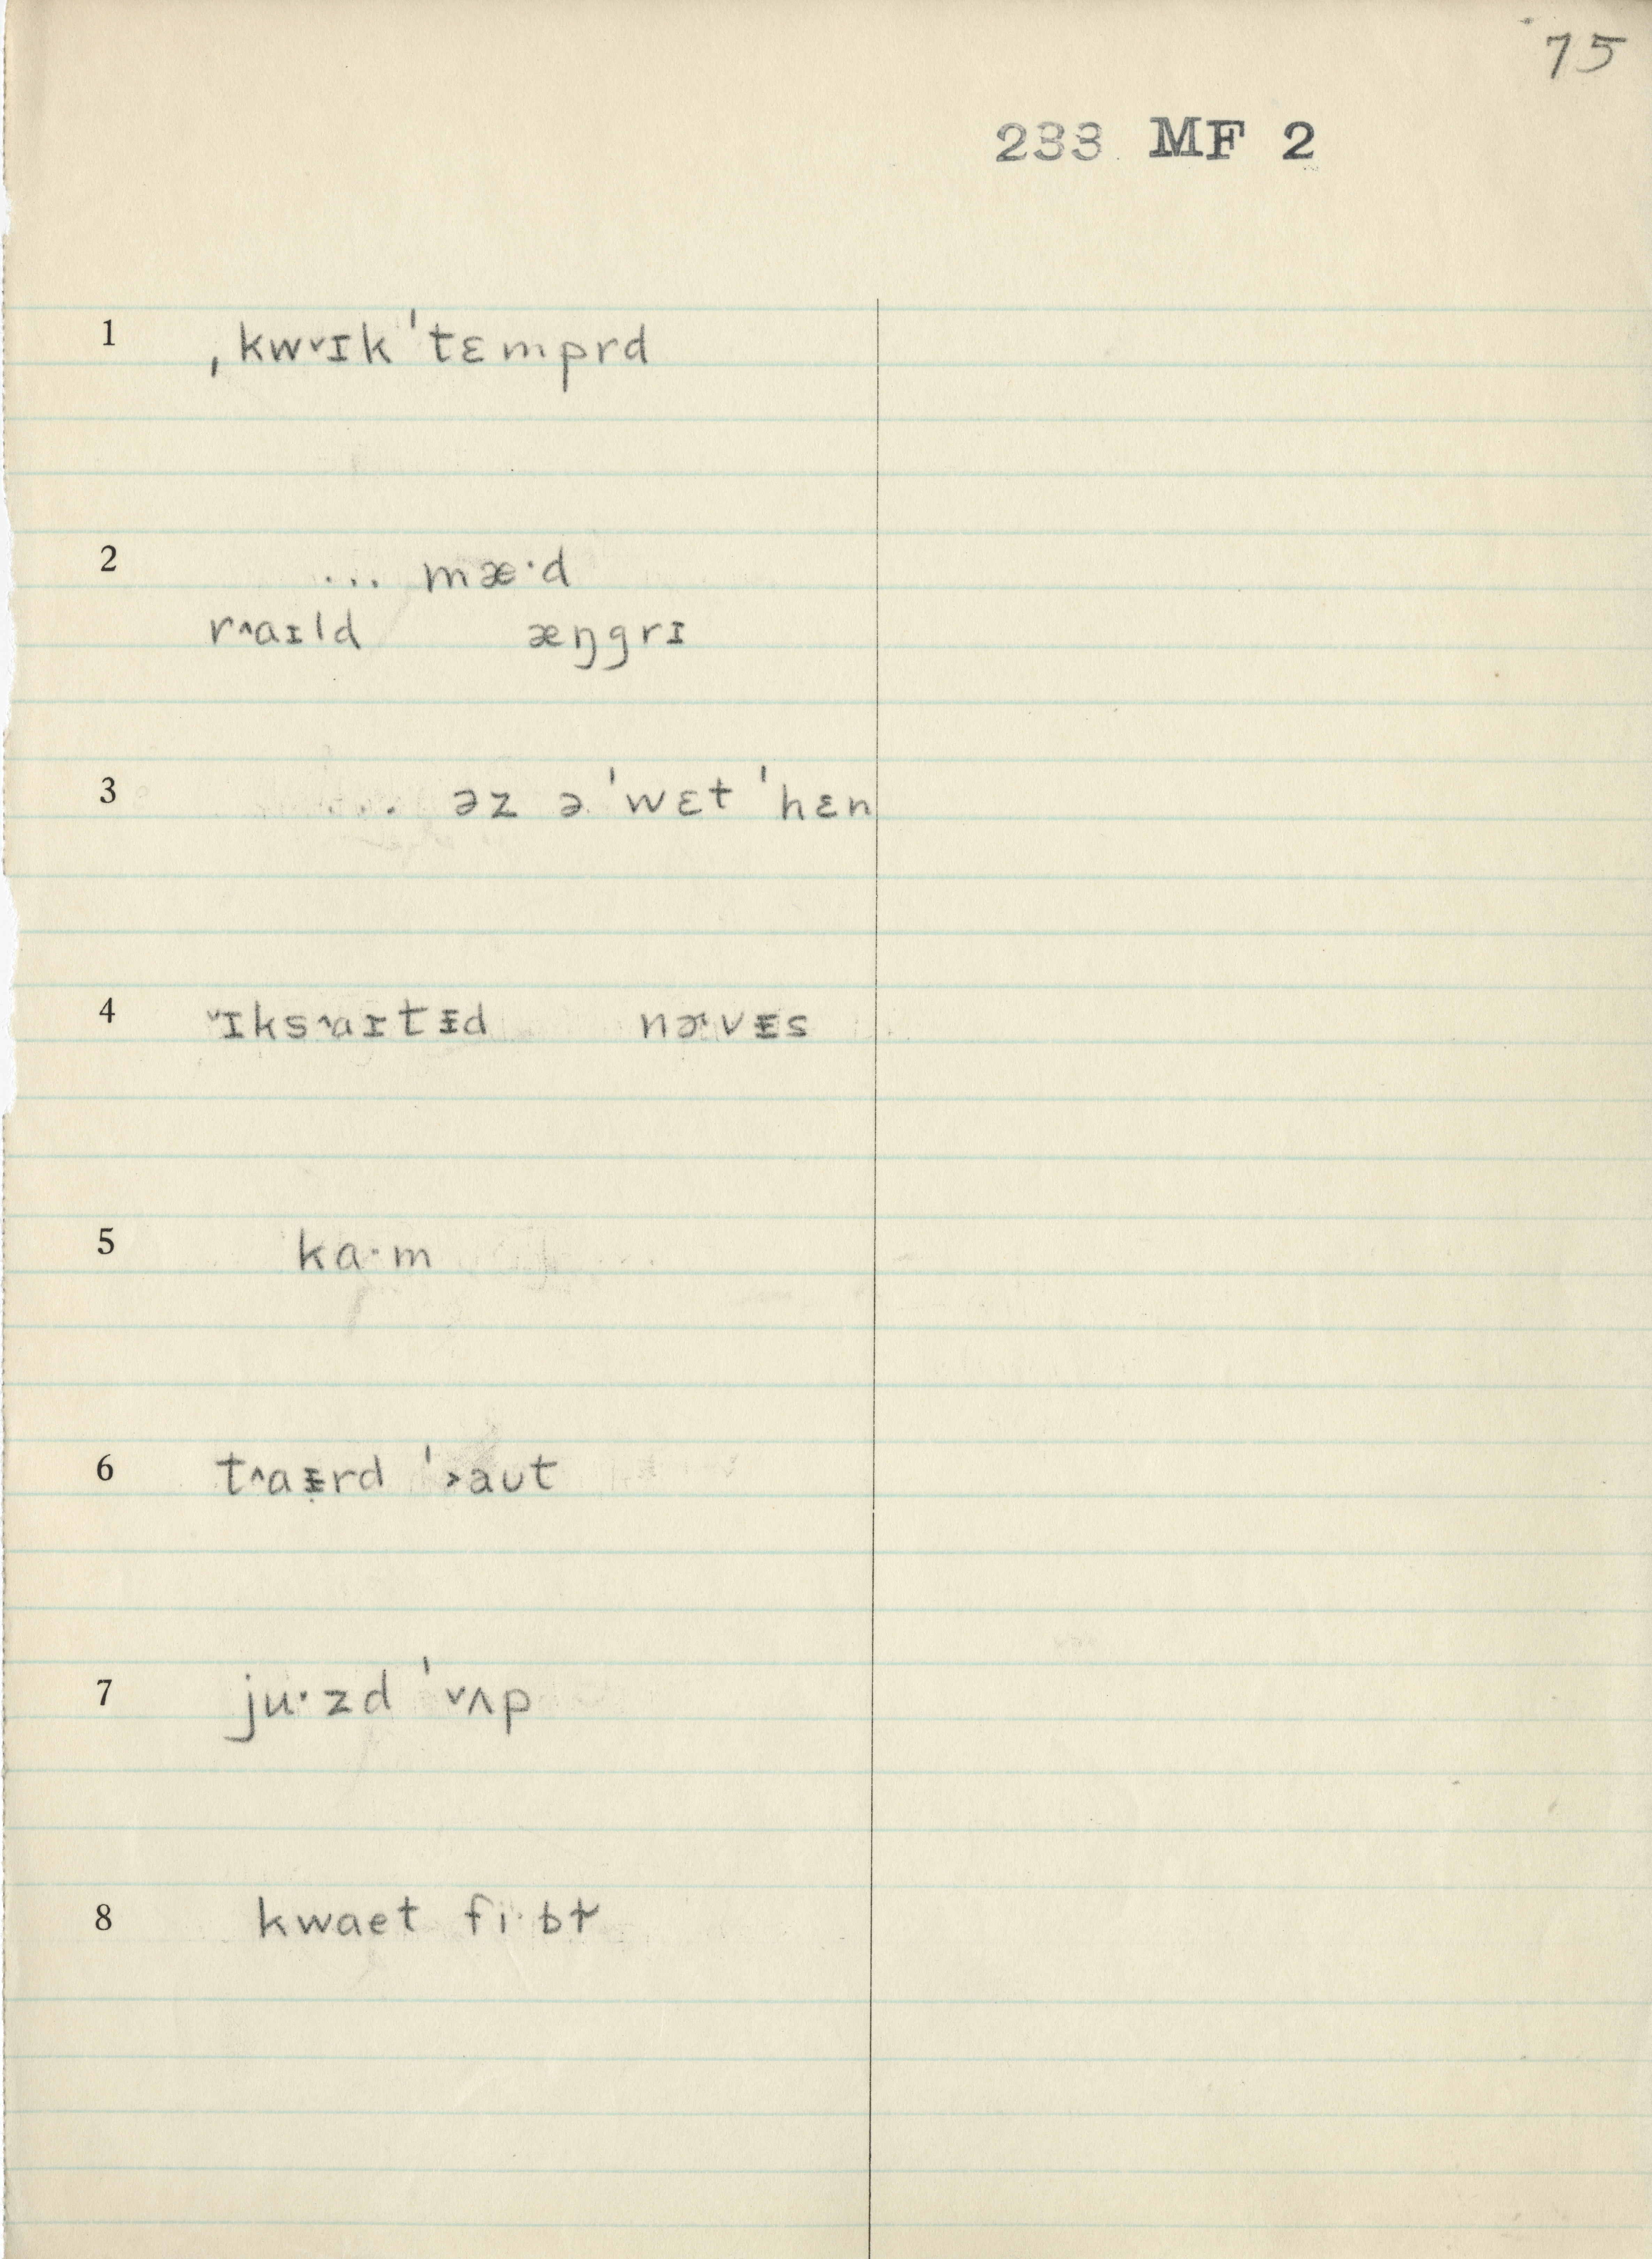 75
233 MF 2
1 ˌkw˅ɪk ˈtɛmprd
2 ... mæ·d
r˄aɪld æŋgrɪ
3 ... əz ə ˈwɛt ˈhɛn
4 ˅ɪks˄aɪtᵻd nɚvᵻs
5 ka·m
6 t˄aᵻrd ˈ˃aut
7 ju·zd ˈ˅ʌp
8 kwaet